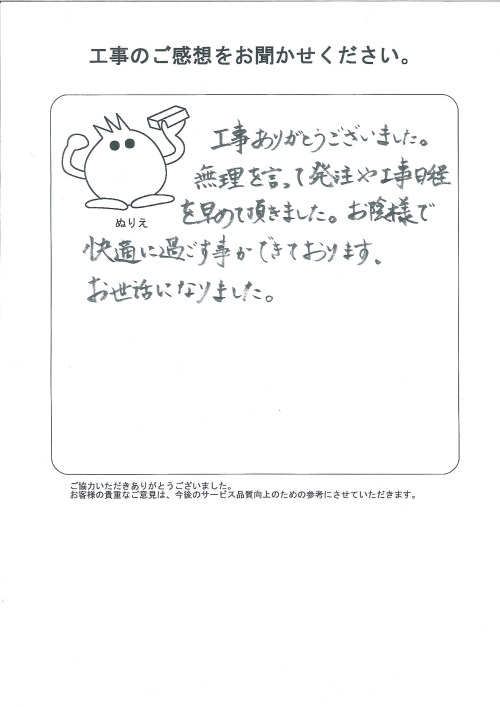 工事のご感想をお聞かせください。
工事ありがとうございました。
無理を言って発注や工事日程
を早めて頂きました。お陰様で
ぬりえ
快適に過ごす事ができております、
お世話になりました。
ご協力いただきありがとうございました。
お客様の貴重なご意見は、今後のサービス品質向上のための参考にさせていただきます。